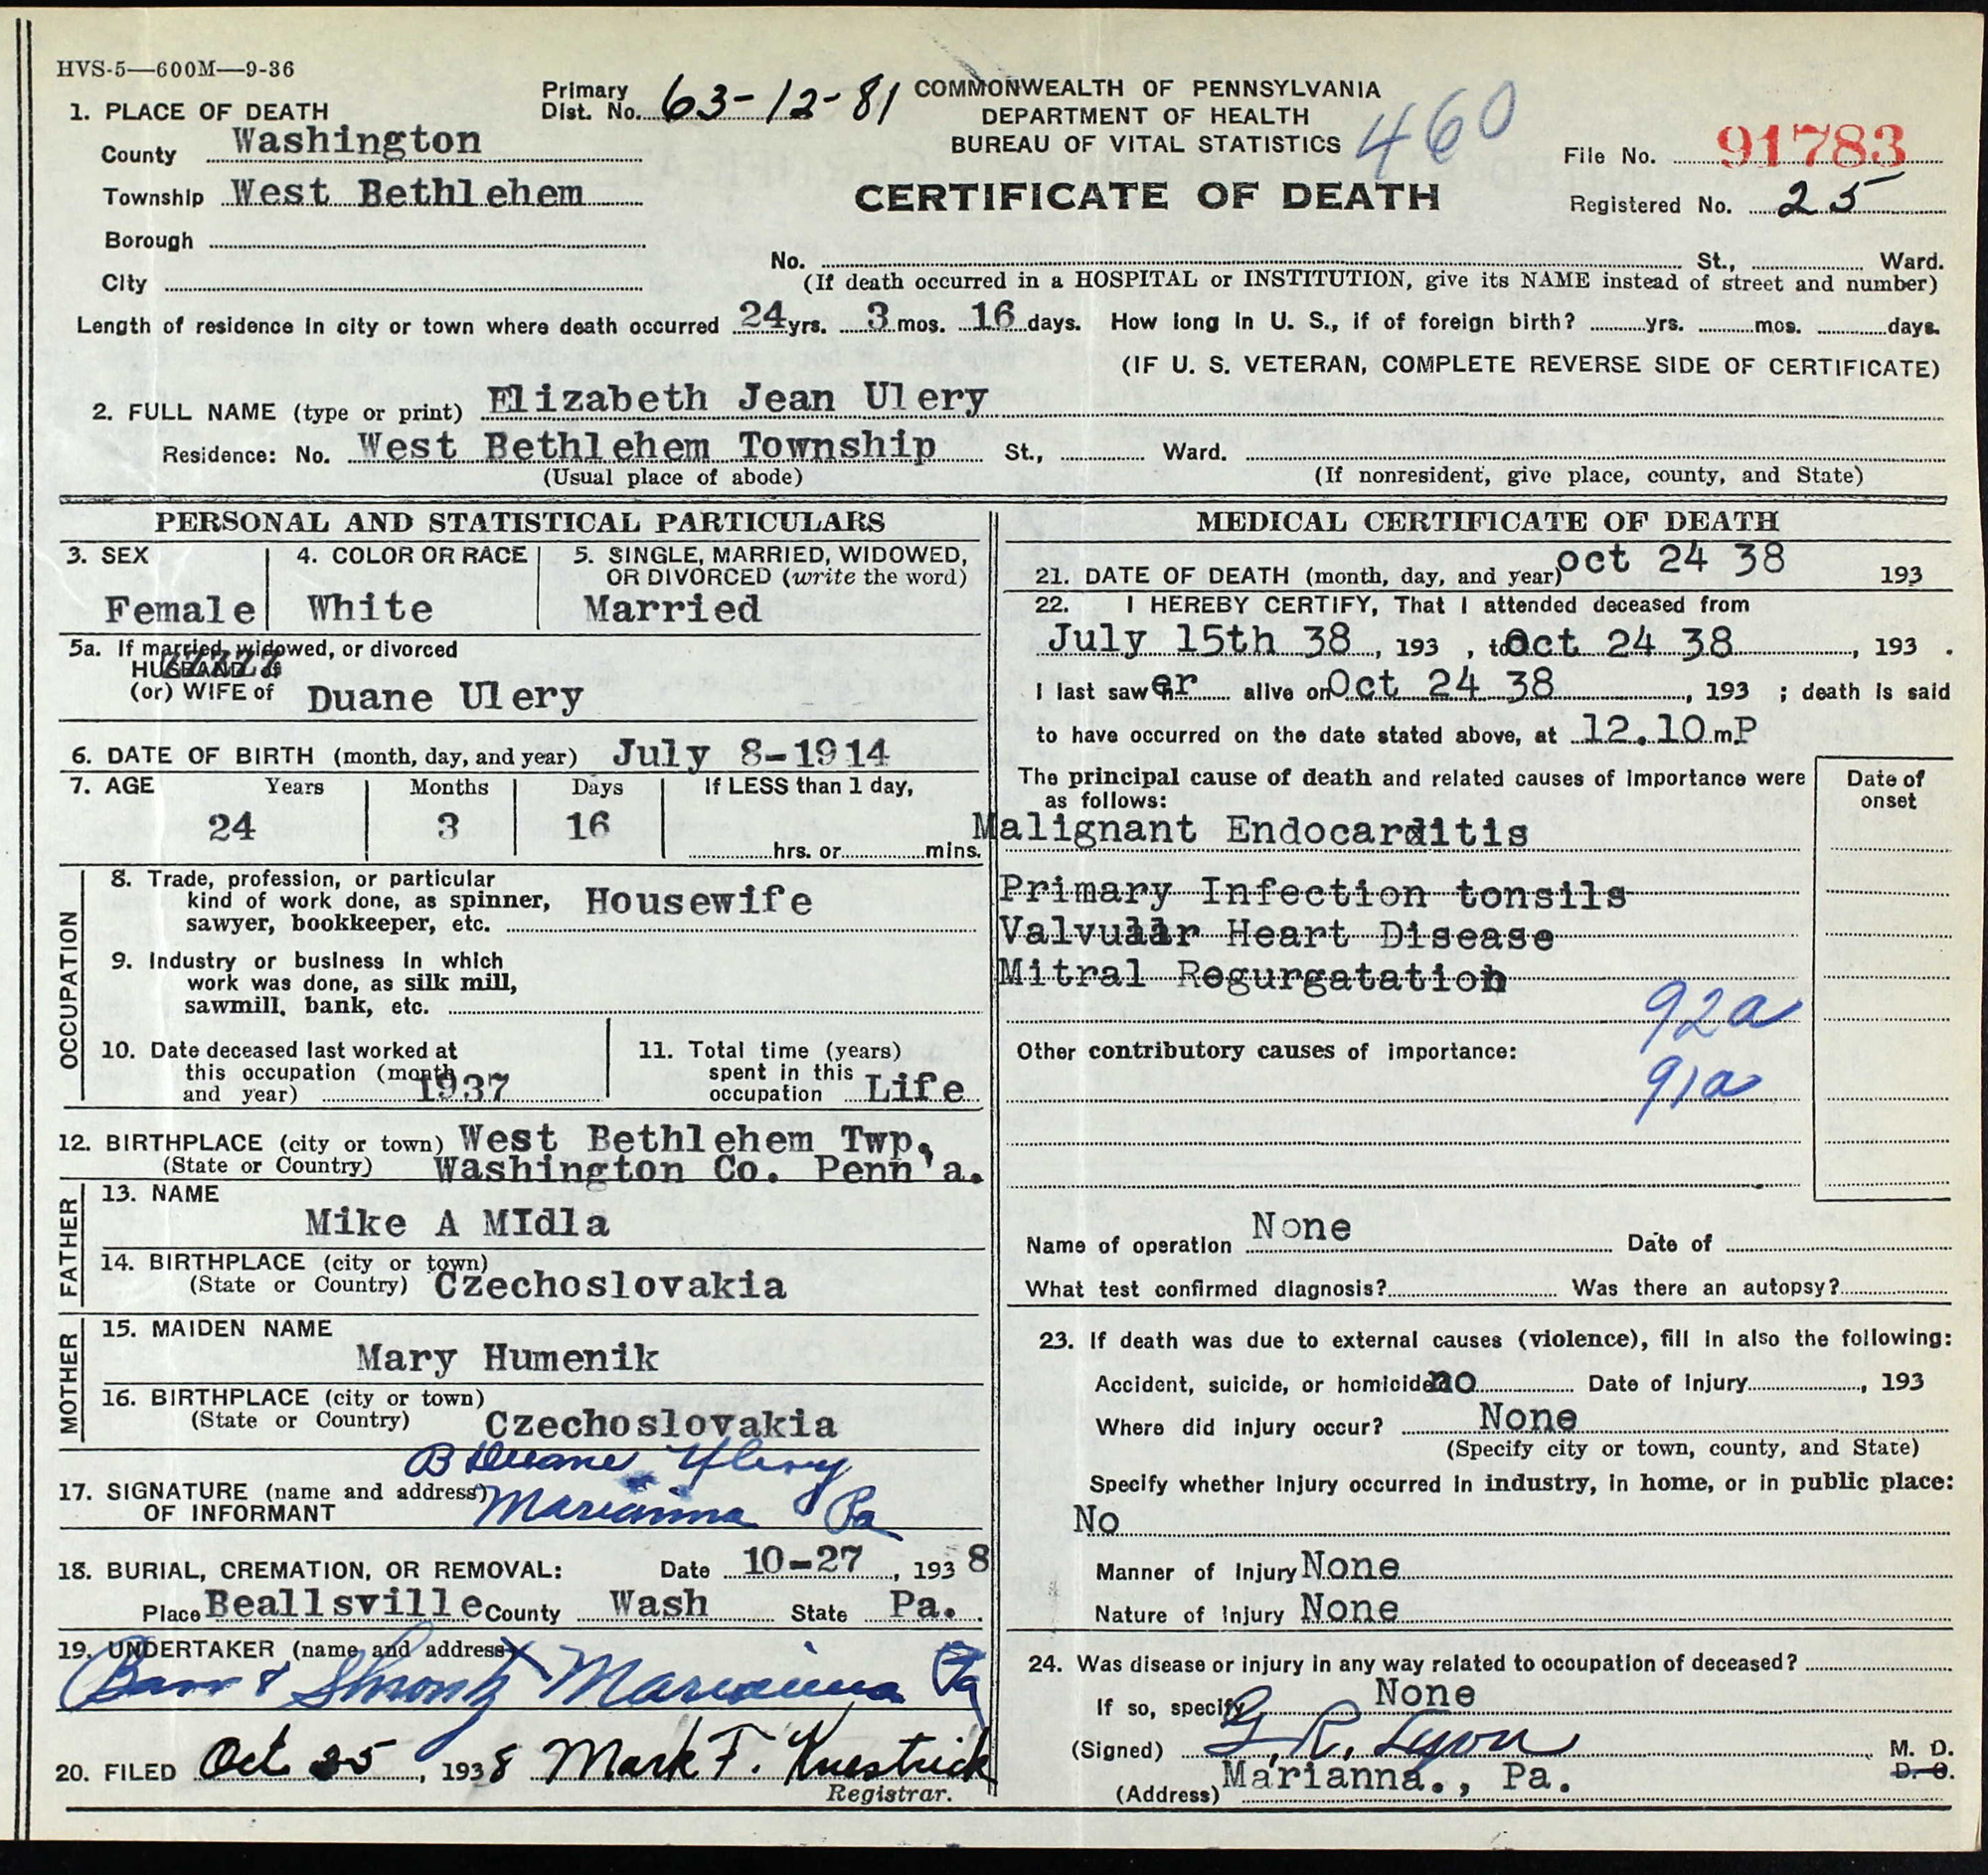 HVS-5—600M—9-36
Primary
Dist. No. 63-12-81
COMMONWEALTH OF PENNSYLVANIA
DEPARTMENT OF HEALTH
BUREAU OF VITAL STATISTICS
460
CERTIFICATE OF DEATH
File No. 91783
Registered No. 25
1. PLACE OF DEATH
County Washington
Township West Bethlehem
Borough
City
No. St., Ward.
(If death occurred in a HOSPITAL or INSTITUTION, give its NAME instead of street and number)
Length of residence in city or town where death occurred 24 yrs. 3 mos. 16 days. How long in U. S., if of foreign birth? yrs. mos. days.
(IF U. S. VETERAN, COMPLETE REVERSE SIDE OF CERTIFICATE)
2. FULL NAME (type or print) Elizabeth Jean Ulery
Residence: No. West Bethlehem Township St., Ward.
(Usual place of abode) (If nonresident, give place, county, and State)
PERSONAL AND STATISTICAL PARTICULARS
3. SEX
Female
4. COLOR OR RACE
White
5. SINGLE, MARRIED, WIDOWED,
OR DIVORCED (write the word)
Married
5a. If married, widowed, or divorced
HUSBAND of
(or) WIFE of Duane Ulery
6. DATE OF BIRTH (month, day, and year) July 8-1914
7. AGE Years Months Days If LESS than 1 day,
24 3 16
hrs. or mins.
OCCUPATION
8. Trade, profession, or particular
kind of work done, as spinner, Housewife
sawyer, bookkeeper, etc.
9. Industry or business in which
work was done, as silk mill,
sawmill, bank, etc.
10. Date deceased last worked at
this occupation (month
and year) 1937
11. Total time (years)
spent in this
occupation Life
12. BIRTHPLACE (city or town) West Bethlehem Twp,
(State or Country) Washington Co. Penn'a.
FATHER
13. NAME
Mike A MIdla
14. BIRTHPLACE (city or town)
(State or Country) Czechoslovakia
MOTHER
15. MAIDEN NAME
Mary Humenik
16. BIRTHPLACE (city or town)
(State or Country) Czechoslovakia
B Duane Ulery
17. SIGNATURE (name and address)
OF INFORMANT
Marianna Pa
18. BURIAL, CREMATION, OR REMOVAL: Date 10-27, 1938
Place Beallsville County Wash State Pa.
19. UNDERTAKER (name and address)
& Shrontz Marianna Pa
20. FILED Oct 25, 1938 Mark F. Kuestrick
Registrar.
MEDICAL CERTIFICATE OF DEATH
21. DATE OF DEATH (month, day, and year) oct 24 38 193
22. I HEREBY CERTIFY, That I attended deceased from
July 15th 38, 193 , to Oct 24 38, 193 .
I last saw er alive on Oct 24 38, 193 ; death is said
to have occurred on the date stated above, at 12.10 m.P
The principal cause of death and related causes of importance were
as follows:
Date of
onset
Malignant Endocarditis
Primary Infection tonsils
Valvular Heart Disease
Mitral Regurgatation
92a
Other contributory causes of importance:
91a
Name of operation None Date of
What test confirmed diagnosis? Was there an autopsy?
23. If death was due to external causes (violence), fill in also the following:
Accident, suicide, or homicide no Date of Injury, 193
Where did injury occur? None
(Specify city or town, county, and State)
Specify whether injury occurred in industry, in home, or in public place:
No
Manner of Injury None
Nature of Injury None
24. Was disease or injury in any way related to occupation of deceased?
If so, specify None
(Signed) G. R. Lyon, M. D.
D. O.
(Address) Marianna., Pa.